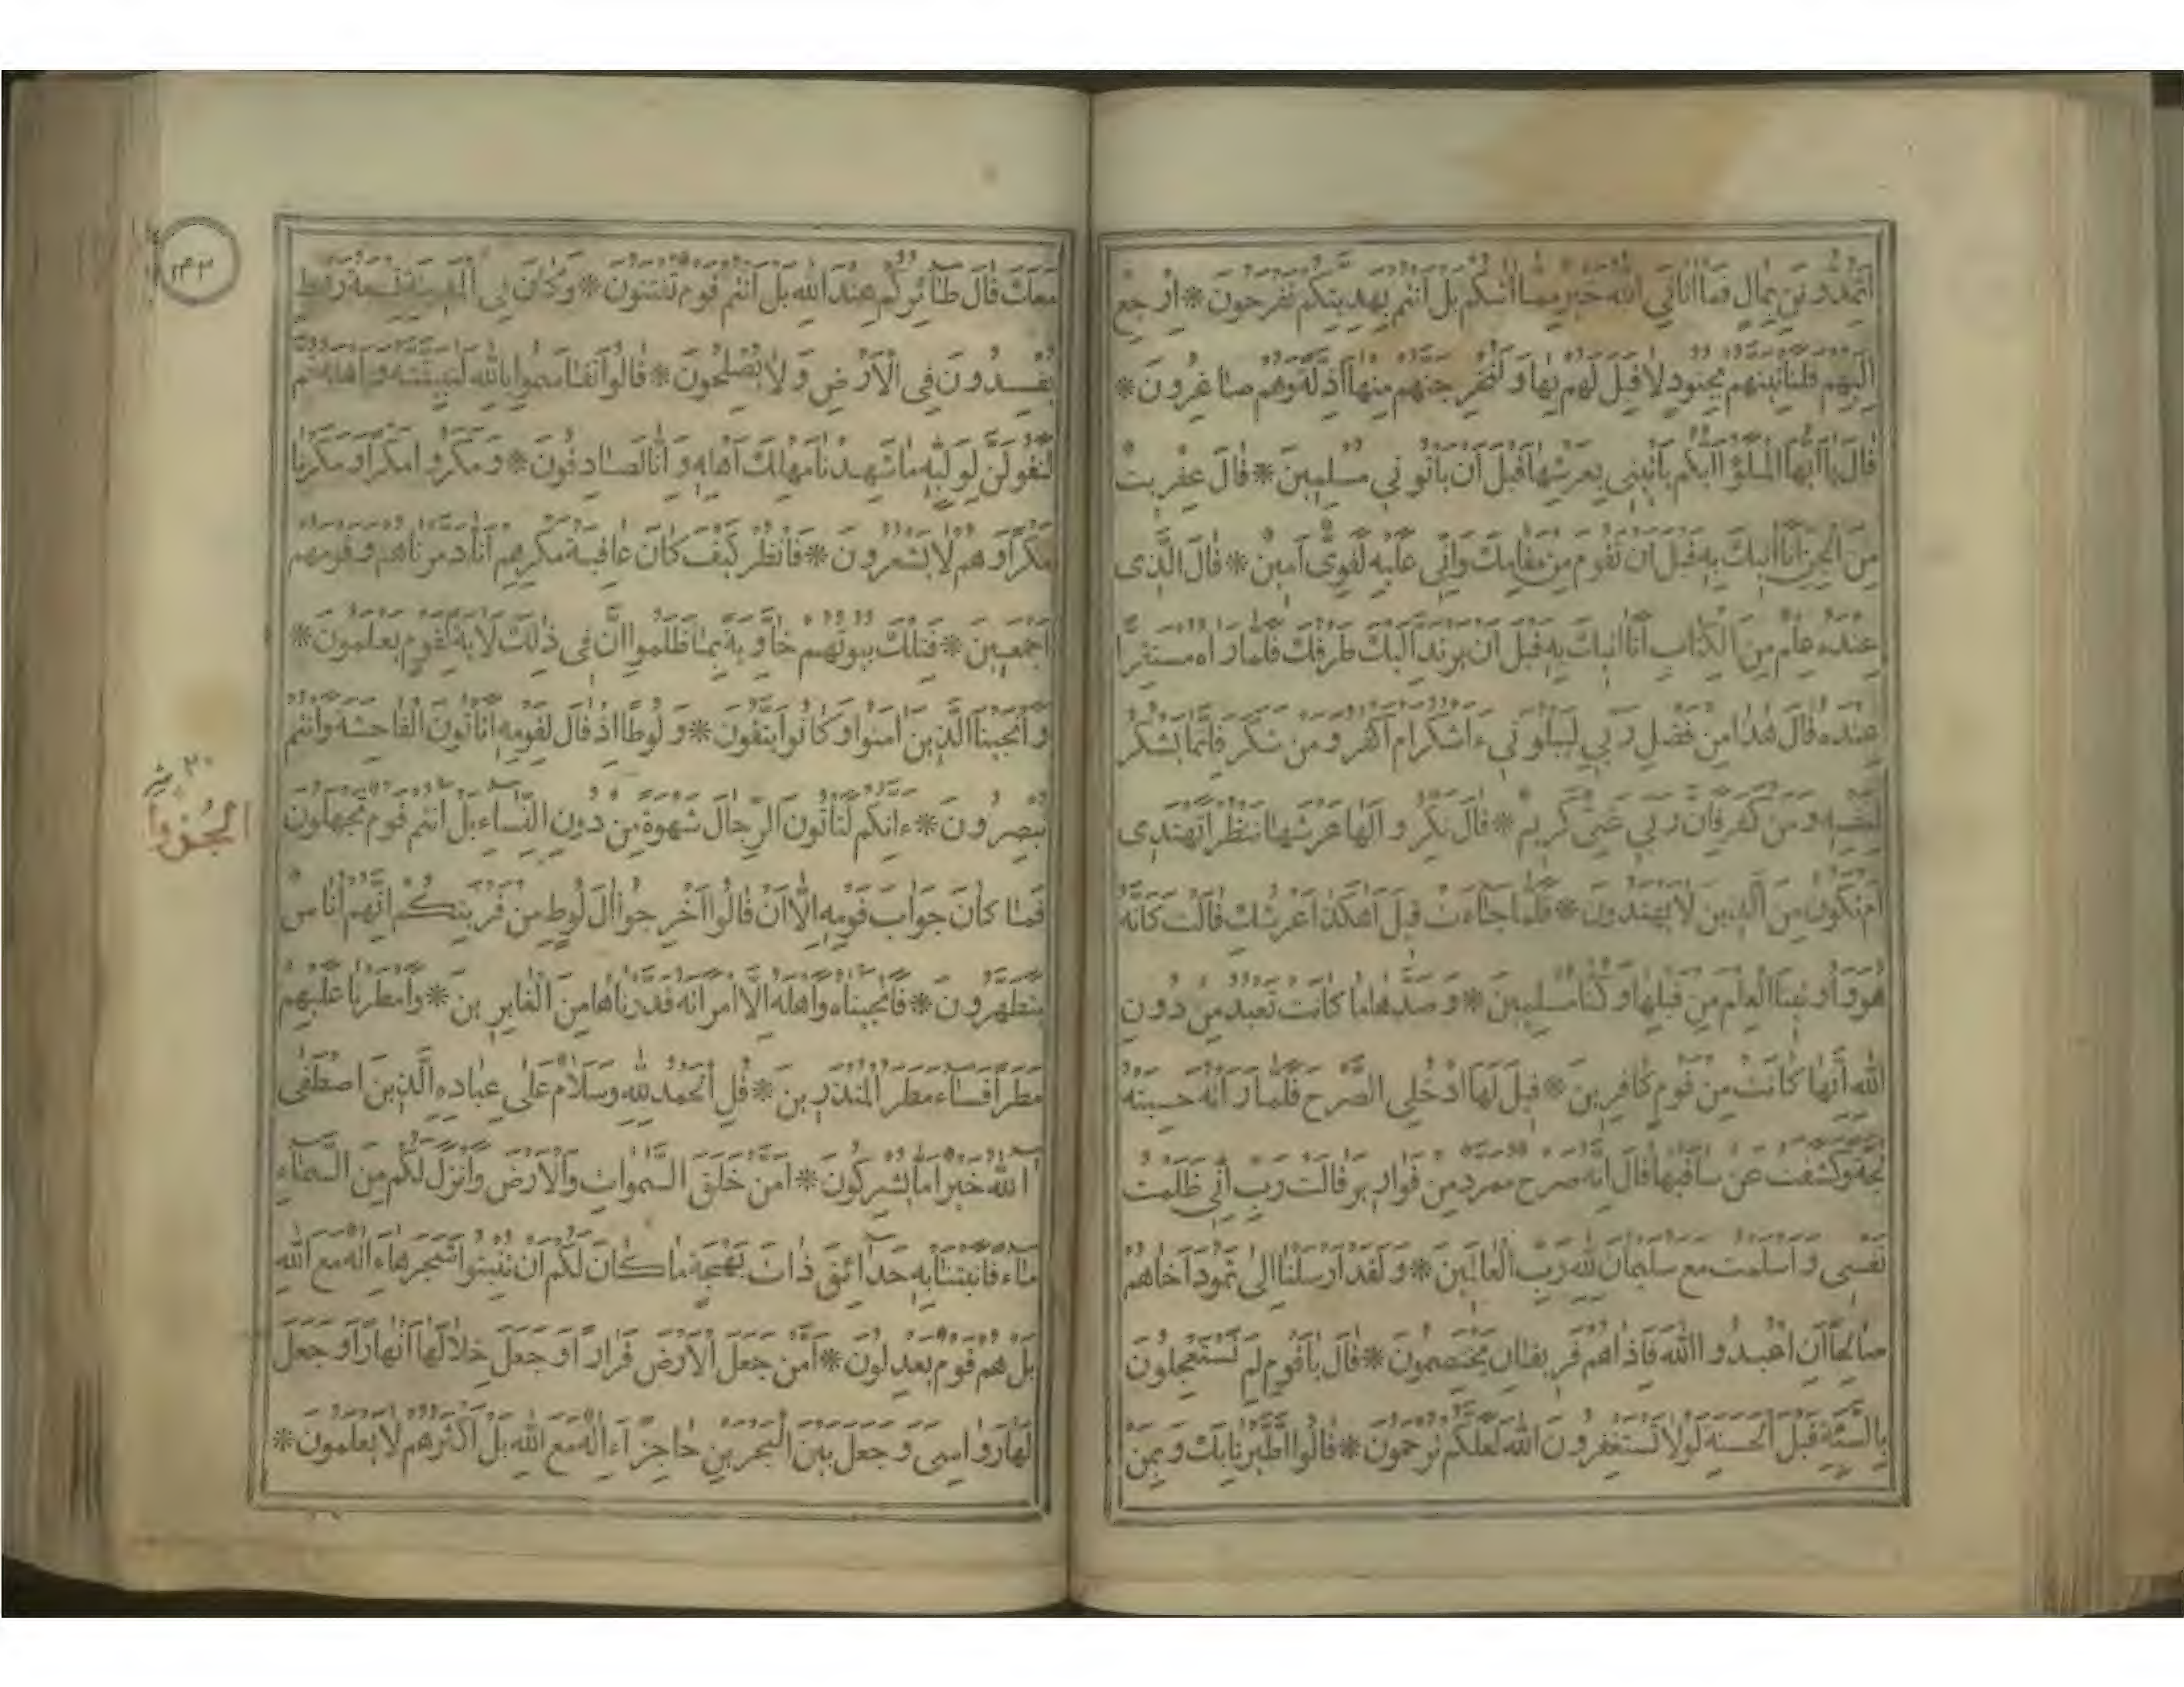 أتمدونن بمال فما آتاني الله خير مما آتاكم بل أنتم بهديتكم تفرحون * ارجع
إليهم فلنأتينهم بجنود لا قبل لهم بها ولنخرجنهم منها أذلة وهم صاغرون *
قال يا أيها الملؤا أيكم يأتيني بعرشها قبل أن يأتوني مسلمين * قال عفريت
من الجن أنا آتيك به قبل أن تقوم من مقامك وإني عليه لقوي أمين * قال الذي
عنده علم من الكتاب أنا آتيك به قبل أن يرتد إليك طرفك فلما رآه مستقرا
عنده قال هذا من فضل ربي ليبلوني ءاشكر أم أكفر ومن شكر فإنما يشكر
لنفسه ومن كفر فإن ربي غني كريم * قال نكروا لها عرشها ننظر أتهتدي
أم تكون من الذين لا يهتدون * فلما جاءت قيل أهكذا عرشك قالت كأنه
هو وأوتينا العلم من قبلها وكنا مسلمين * وصدها ما كانت تعبد من دون
الله إنها كانت من قوم كافرين * قيل لها ادخلي الصرح فلما رأته حسبته
لجة وكشفت عن ساقيها قال إنه صرح ممرد من قوارير قالت رب إني ظلمت
نفسي وأسلمت مع سليمان لله رب العالمين * ولقد أرسلنا إلى ثمود أخاهم
صالحا أن اعبدوا الله فإذا هم فريقان يختصمون * قال يا قوم لم تستعجلون
بالسيئة قبل الحسنة لولا تستغفرون الله لعلكم ترحمون * قالوا اطيرنا بك وبمن
معك قال طائركم عند الله بل أنتم قوم تفتنون * وكان في المدينة تسعة رهط
يفسدون في الأرض ولا يصلحون * قالوا تقاسموا بالله لنبيتنه وأهله ثم
لنقولن لوليه ما شهدنا مهلك أهله وإنا لصادقون * ومكروا مكرا ومكرنا
مكرا وهم لا يشعرون * فانظر كيف كان عاقبة مكرهم أنا دمرناهم وقومهم
أجمعين * فتلك بيوتهم خاوية بما ظلموا إن في ذلك لآية لقوم يعلمون *
وأنجينا الذين آمنوا وكانوا يتقون * ولوطا إذ قال لقومه أتأتون الفاحشة وأنتم
تبصرون * ءانكم لتأتون الرجال شهوة من دون النساء بل أنتم قوم تجهلون
الجزو
فما كان جواب قومه إلا أن قالوا أخرجوا آل لوط من قريتكم إنهم أناس
يتطهرون * فأنجيناه وأهله إلا امرأته قدرناها من الغابرين * وأمطرنا عليهم
مطرا فساء مطر المنذرين * قل الحمد لله وسلام على عباده الذين اصطفى
آلله خير أما يشركون * أمن خلق السموات والأرض وأنزل لكم من السماء
ماء فأنبتنا به حدائق ذات بهجة ما كان لكم أن تنبتوا شجرها ءاله مع الله
بل هم قوم يعدلون * أمن جعل الأرض قرارا وجعل خلالها أنهارا وجعل
لها رواسي وجعل بين البحرين حاجزا ءاله مع الله بل أكثرهم لا يعلمون *